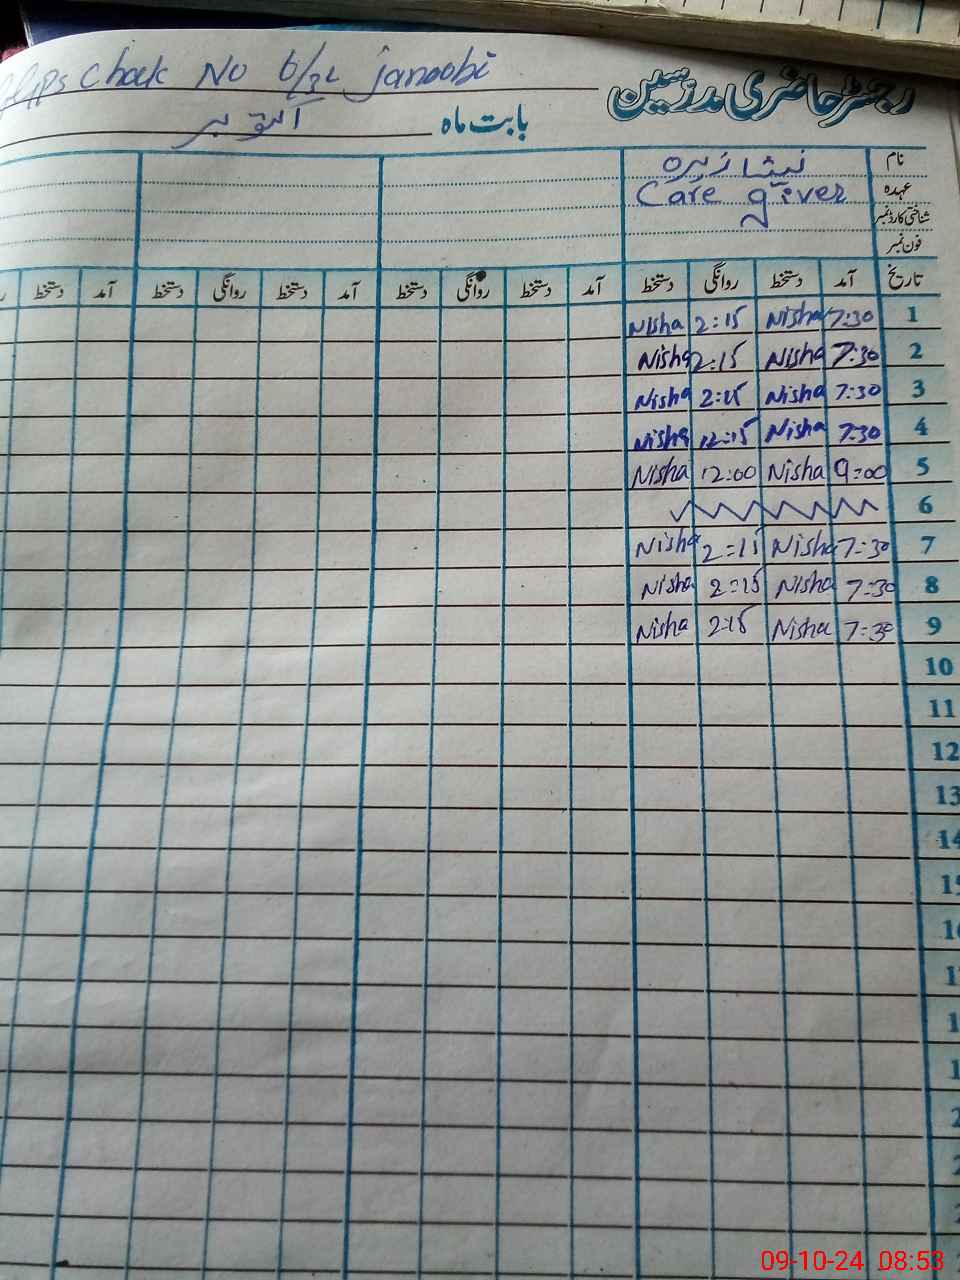 Chack No 6/32 janoobi
رجسٹر حاضری مدرسین
بابت ماہ اکتوبر
نام نیشا زہرہ
عہدہ Care giver
شناختی کارڈ نمبر
فون نمبر
تاریخ آمد دستخط روانگی دستخط آمد دستخط روانگی دستخط آمد دستخط روانگی دستخط آمد دستخط
1 7:30 Nisha 2:15 Nisha
2 7:30 Nisha 2:15 Nisha
3 7:30 Nisha 2:15 Nisha
4 7:30 Nisha 12:15 Nisha
5 9:00 Nisha 12:00 Nisha
6
7 7:30 Nisha 2:15 Nisha
8 7:30 Nisha 2:15 Nisha
9 7:30 Nisha 2:15 Nisha
10
11
12
13
14
09-10-24 08:53